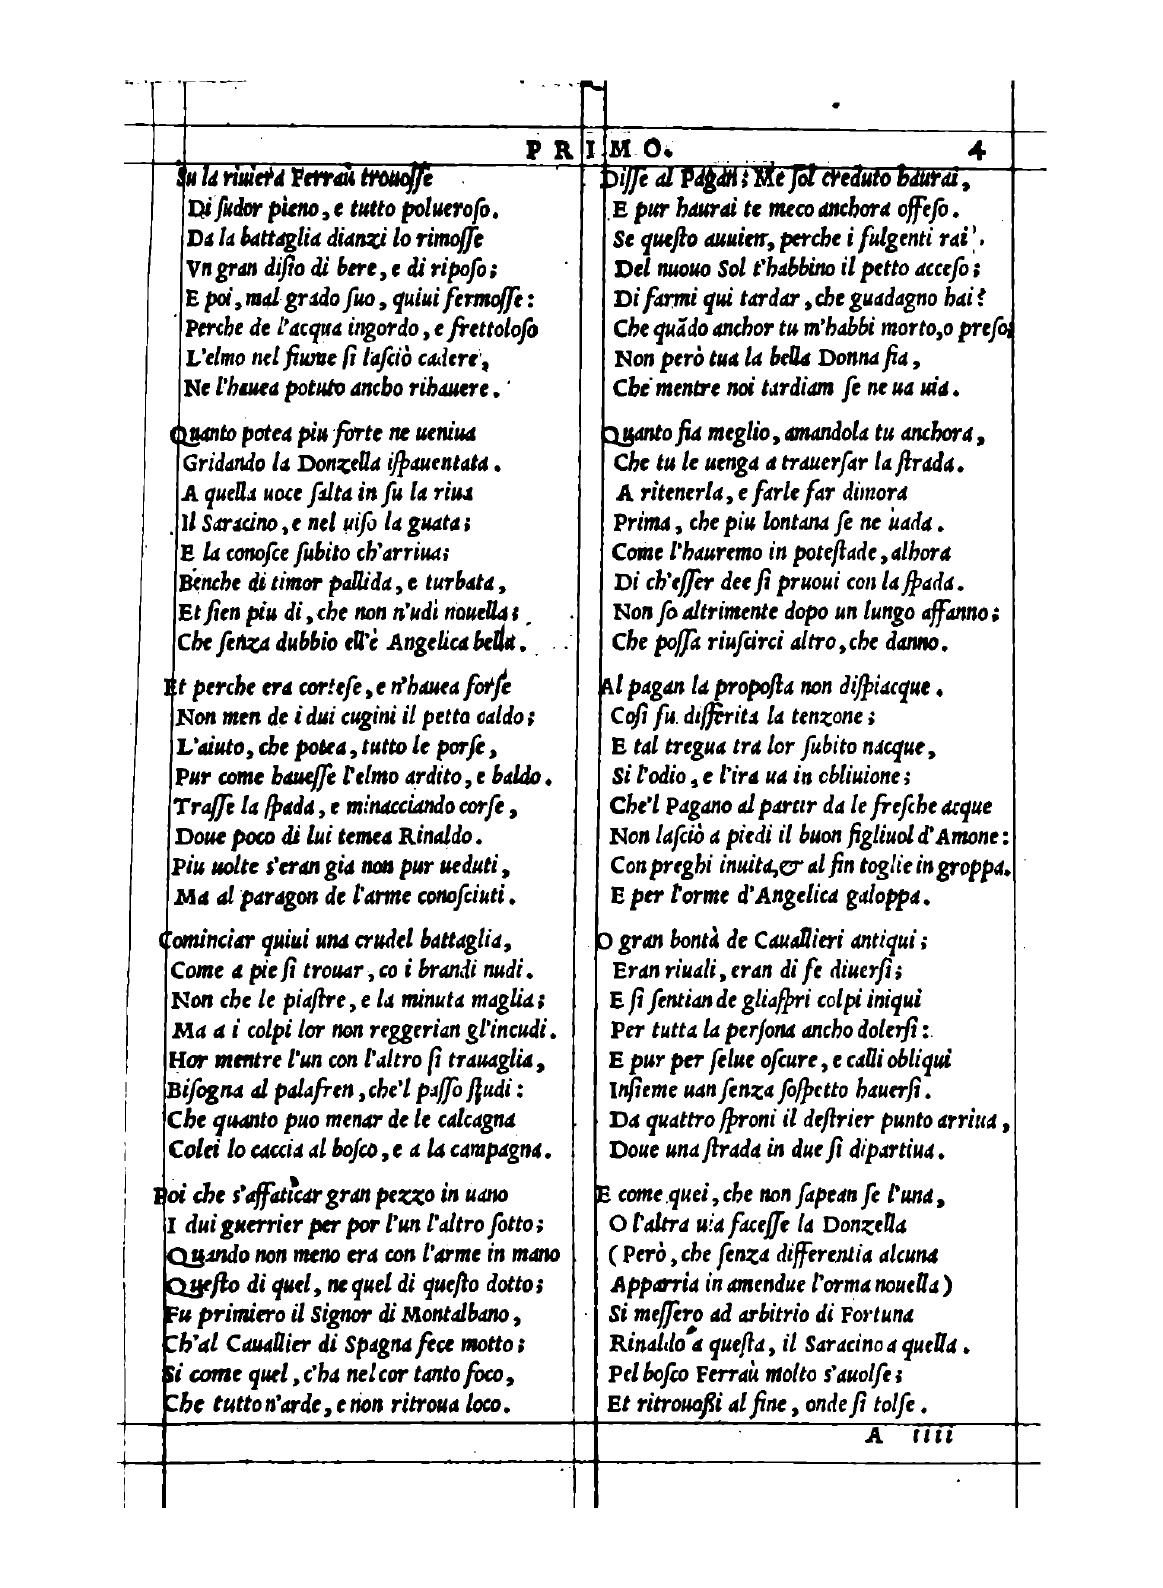 PRIMO. 4
Su la riuiera Ferraù trouoſſe
Di ſudor pieno, e tutto polueroſo.
Da la battaglia dianzi lo rimoſſe
Vn gran diſio di bere, e di ripoſo;
E poi, mal grado ſuo, quiui fermoſſe:
Perche de l'acqua ingordo, e frettoloſo
L'elmo nel fiume ſi laſciò cadere,
Ne l'hauea potuto ancho rihauere.
Quanto potea piu forte ne ueniua
Gridando la Donzella iſpauentata.
A quella uoce ſalta in ſu la riua
Il Saracino, e nel uiſo la guata;
E la conoſce ſubito ch'arriua;
Benche di timor pallida, e turbata,
Et ſien piu di, che non n'udì nouella;
Che ſenza dubbio ell'è Angelica bella.
Et perche era corteſe, e n'hauea forſe
Non men de i dui cugini il petto caldo;
L'aiuto, che potea, tutto le porſe,
Pur come haueſſe l'elmo ardito, e baldo.
Traſſe la ſpada, e minacciando corſe,
Doue poco di lui temea Rinaldo.
Piu uolte s'eran gia non pur ueduti,
Ma al paragon de l'arme conoſciuti.
Cominciar quiui una crudel battaglia,
Come a pie ſi trouar, co i brandi nudi.
Non che le piaſtre, e la minuta maglia;
Ma a i colpi lor non reggerian gl'incudi.
Hor mentre l'un con l'altro ſi trauaglia,
Biſogna al palafren, che'l paſſo ſtudi:
Che quanto puo menar de le calcagna
Colei lo caccia al boſco, e a la campagna.
Poi che s'affaticar gran pezzo in uano
I dui guerrier per por l'un l'altro ſotto;
Quando non meno era con l'arme in mano
Queſto di quel, ne quel di queſto dotto;
Fu primiero il Signor di Montalbano,
Ch'al Cauallier di Spagna fece motto;
Si come quel, c'ha nel cor tanto foco,
Che tutto n'arde, e non ritroua loco.
Diſſe al Pagan; Me ſol creduto haurai,
E pur haurai te meco anchora offeſo.
Se queſto auuien, perche i fulgenti rai
Del nuouo Sol t'habbino il petto acceſo;
Di farmi qui tardar, che guadagno hai?
Che quãdo anchor tu m'habbi morto, o preſo;
Non però tua la bella Donna fia,
Che mentre noi tardiam ſe ne ua uia.
Quanto fia meglio, amandola tu anchora,
Che tu le uenga a trauerſar la ſtrada.
A ritenerla, e farle far dimora
Prima, che piu lontana ſe ne uada.
Come l'hauremo in poteſtade, alhora
Di ch'eſſer dee ſi pruoui con la ſpada.
Non ſo altrimente dopo un lungo affanno;
Che poſſa riuſcirci altro, che danno.
Al pagan la propoſta non diſpiacque.
Coſi fu differita la tenzone;
E tal tregua tra lor ſubito nacque,
Si l'odio, e l'ira ua in obliuione;
Che'l Pagano al partir da le freſche acque
Non laſciò a piedi il buon figliuol d'Amone:
Con preghi inuita, & al fin toglie in groppa.
E per l'orme d'Angelica galoppa.
O gran bontà de Cauallieri antiqui;
Eran riuali, eran di fe diuerſi;
E ſi ſentian de gli aſpri colpi iniqui
Per tutta la perſona ancho dolerſi:
E pur per ſelue oſcure, e calli obliqui
Inſieme uan ſenza ſoſpetto hauerſi.
Da quattro ſproni il deſtrier punto arriua,
Doue una ſtrada in due ſi dipartiua.
E come quei, che non ſapean ſe l'una,
O l'altra uia faceſſe la Donzella
(Però, che ſenza differentia alcuna
Apparria in amendue l'orma nouella)
Si meſſero ad arbitrio di Fortuna
Rinaldo a queſta, il Saracino a quella.
Pel boſco Ferraù molto s'auolſe;
Et ritrouoßi al fine, onde ſi tolſe.
A iiii